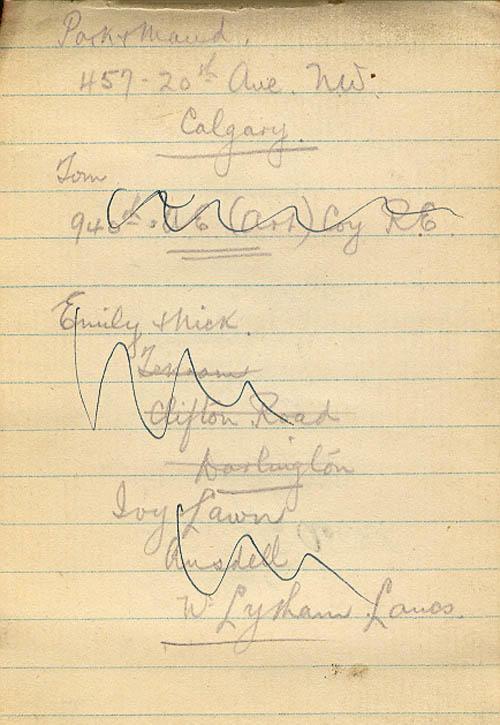 & Maud.
457-20th Ave. N.W.
Calgary.
Tom
(Art) Coy R.E.
Emily & Nick.
Clifton Road
Darlington
Ivy Lawn
Ansdell
Lytham Lancs.